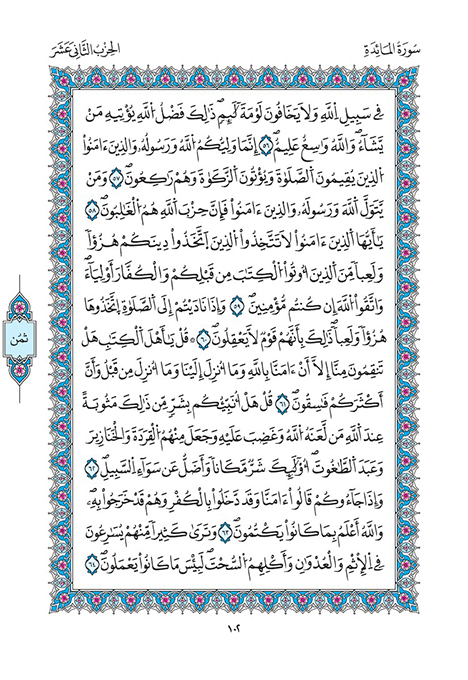 سُورَةُ المَائِدَةِ
الحِزْبُ الثَّانِي عَشَرَ
فِي سَبِيلِ اِ۬للَّهِ وَلَا يَخَافُونَ لَوْمَةَ لَآئِمٖۖ ذَٰلِكَ فَضْلُ اُ۬للَّهِ يُوتِيهِ مَنْ
يَّشَآءُۖ وَاللَّهُ وَٰسِعٌ عَلِيمٌۖ ٥٦ إِنَّمَا وَلِيُّكُمُ اُ۬للَّهُ وَرَسُولُهُۥ وَالذِينَ ءَامَنُواْ
اُ۬لذِينَ يُقِيمُونَ اَ۬لصَّلَوٰةَ وَيُوتُونَ اَ۬لزَّكَوٰةَ وَهُمْ رَٰكِعُونَۖ ٥٧ وَمَنْ
يَّتَوَلَّ اَ۬للَّهَ وَرَسُولَهُۥ وَالذِينَ ءَامَنُواْ فَإِنَّ حِزْبَ اَ۬للَّهِ هُمُ اُ۬لْغَٰلِبُونَۖ ٥٨
يَٰٓأَيُّهَا اَ۬لذِينَ ءَامَنُواْ لَا تَتَّخِذُواْ اُ۬لذِينَ اَ۪تَّخَذُواْ دِينَكُمْ هُزُؤاٗ
وَلَعِباٗ مِّنَ اَ۬لذِينَ أُوتُواْ اُ۬لْكِتَٰبَ مِن قَبْلِكُمْ وَالْكُفَّارَ أَوْلِيَآءَۖ
وَاتَّقُواْ اُ۬للَّهَ إِن كُنتُم مُّومِنِينَۖ ٥٩ وَإِذَا نَادَيْتُمُۥٓ إِلَى اَ۬لصَّلَوٰةِ اِ۪تَّخَذُوهَا
هُزُؤاٗ وَلَعِباٗۖ ذَٰلِكَ بِأَنَّهُمْ قَوْمٞ لَّا يَعْقِلُونَۖ ٦٠ ۞ قُلْ يَٰٓأَهْلَ اَ۬لْكِتَٰبِ هَلْ
تَنقِمُونَ مِنَّآ إِلَّآ أَنَ اٰمَنَّا بِاللَّهِ وَمَآ أُنزِلَ إِلَيْنَا وَمَآ أُنزِلَ مِن قَبْلُ وَأَنَّ
أَكْثَرَكُمْ فَٰسِقُونَۖ ٦١ قُلْ هَلُ ا۟نَبِّئُكُم بِشَرّٖ مِّن ذَٰلِكَ مَثُوبَةً
عِندَ اَ۬للَّهِ مَن لَّعَنَهُ اُ۬للَّهُ وَغَضِبَ عَلَيْهِ وَجَعَلَ مِنْهُمُ اُ۬لْقِرَدَةَ وَالْخَنَازِيرَ
وَعَبَدَ اَ۬لطَّٰغُوتَۖ أُوْلَٰٓئِكَ شَرّٞ مَّكَاناٗ وَأَضَلُّ عَن سَوَآءِ اِ۬لسَّبِيلِۖ ٦٢
وَإِذَا جَآءُوكُمْ قَالُوٓاْ ءَامَنَّا وَقَد دَّخَلُواْ بِالْكُفْرِ وَهُمْ قَدْ خَرَجُواْ بِهِۦۖ
وَاللَّهُ أَعْلَمُ بِمَا كَانُواْ يَكْتُمُونَۖ ٦٣ وَتَرَىٰ كَثِيراٗ مِّنْهُمْ يُسَٰرِعُونَ
فِي اِ۬لِاثْمِ وَالْعُدْوَٰنِ وَأَكْلِهِمُ اُ۬لسُّحْتَۖ لَبِيسَ مَا كَانُواْ يَعْمَلُونَۖ ٦٤
ثُمُن
١٠٢